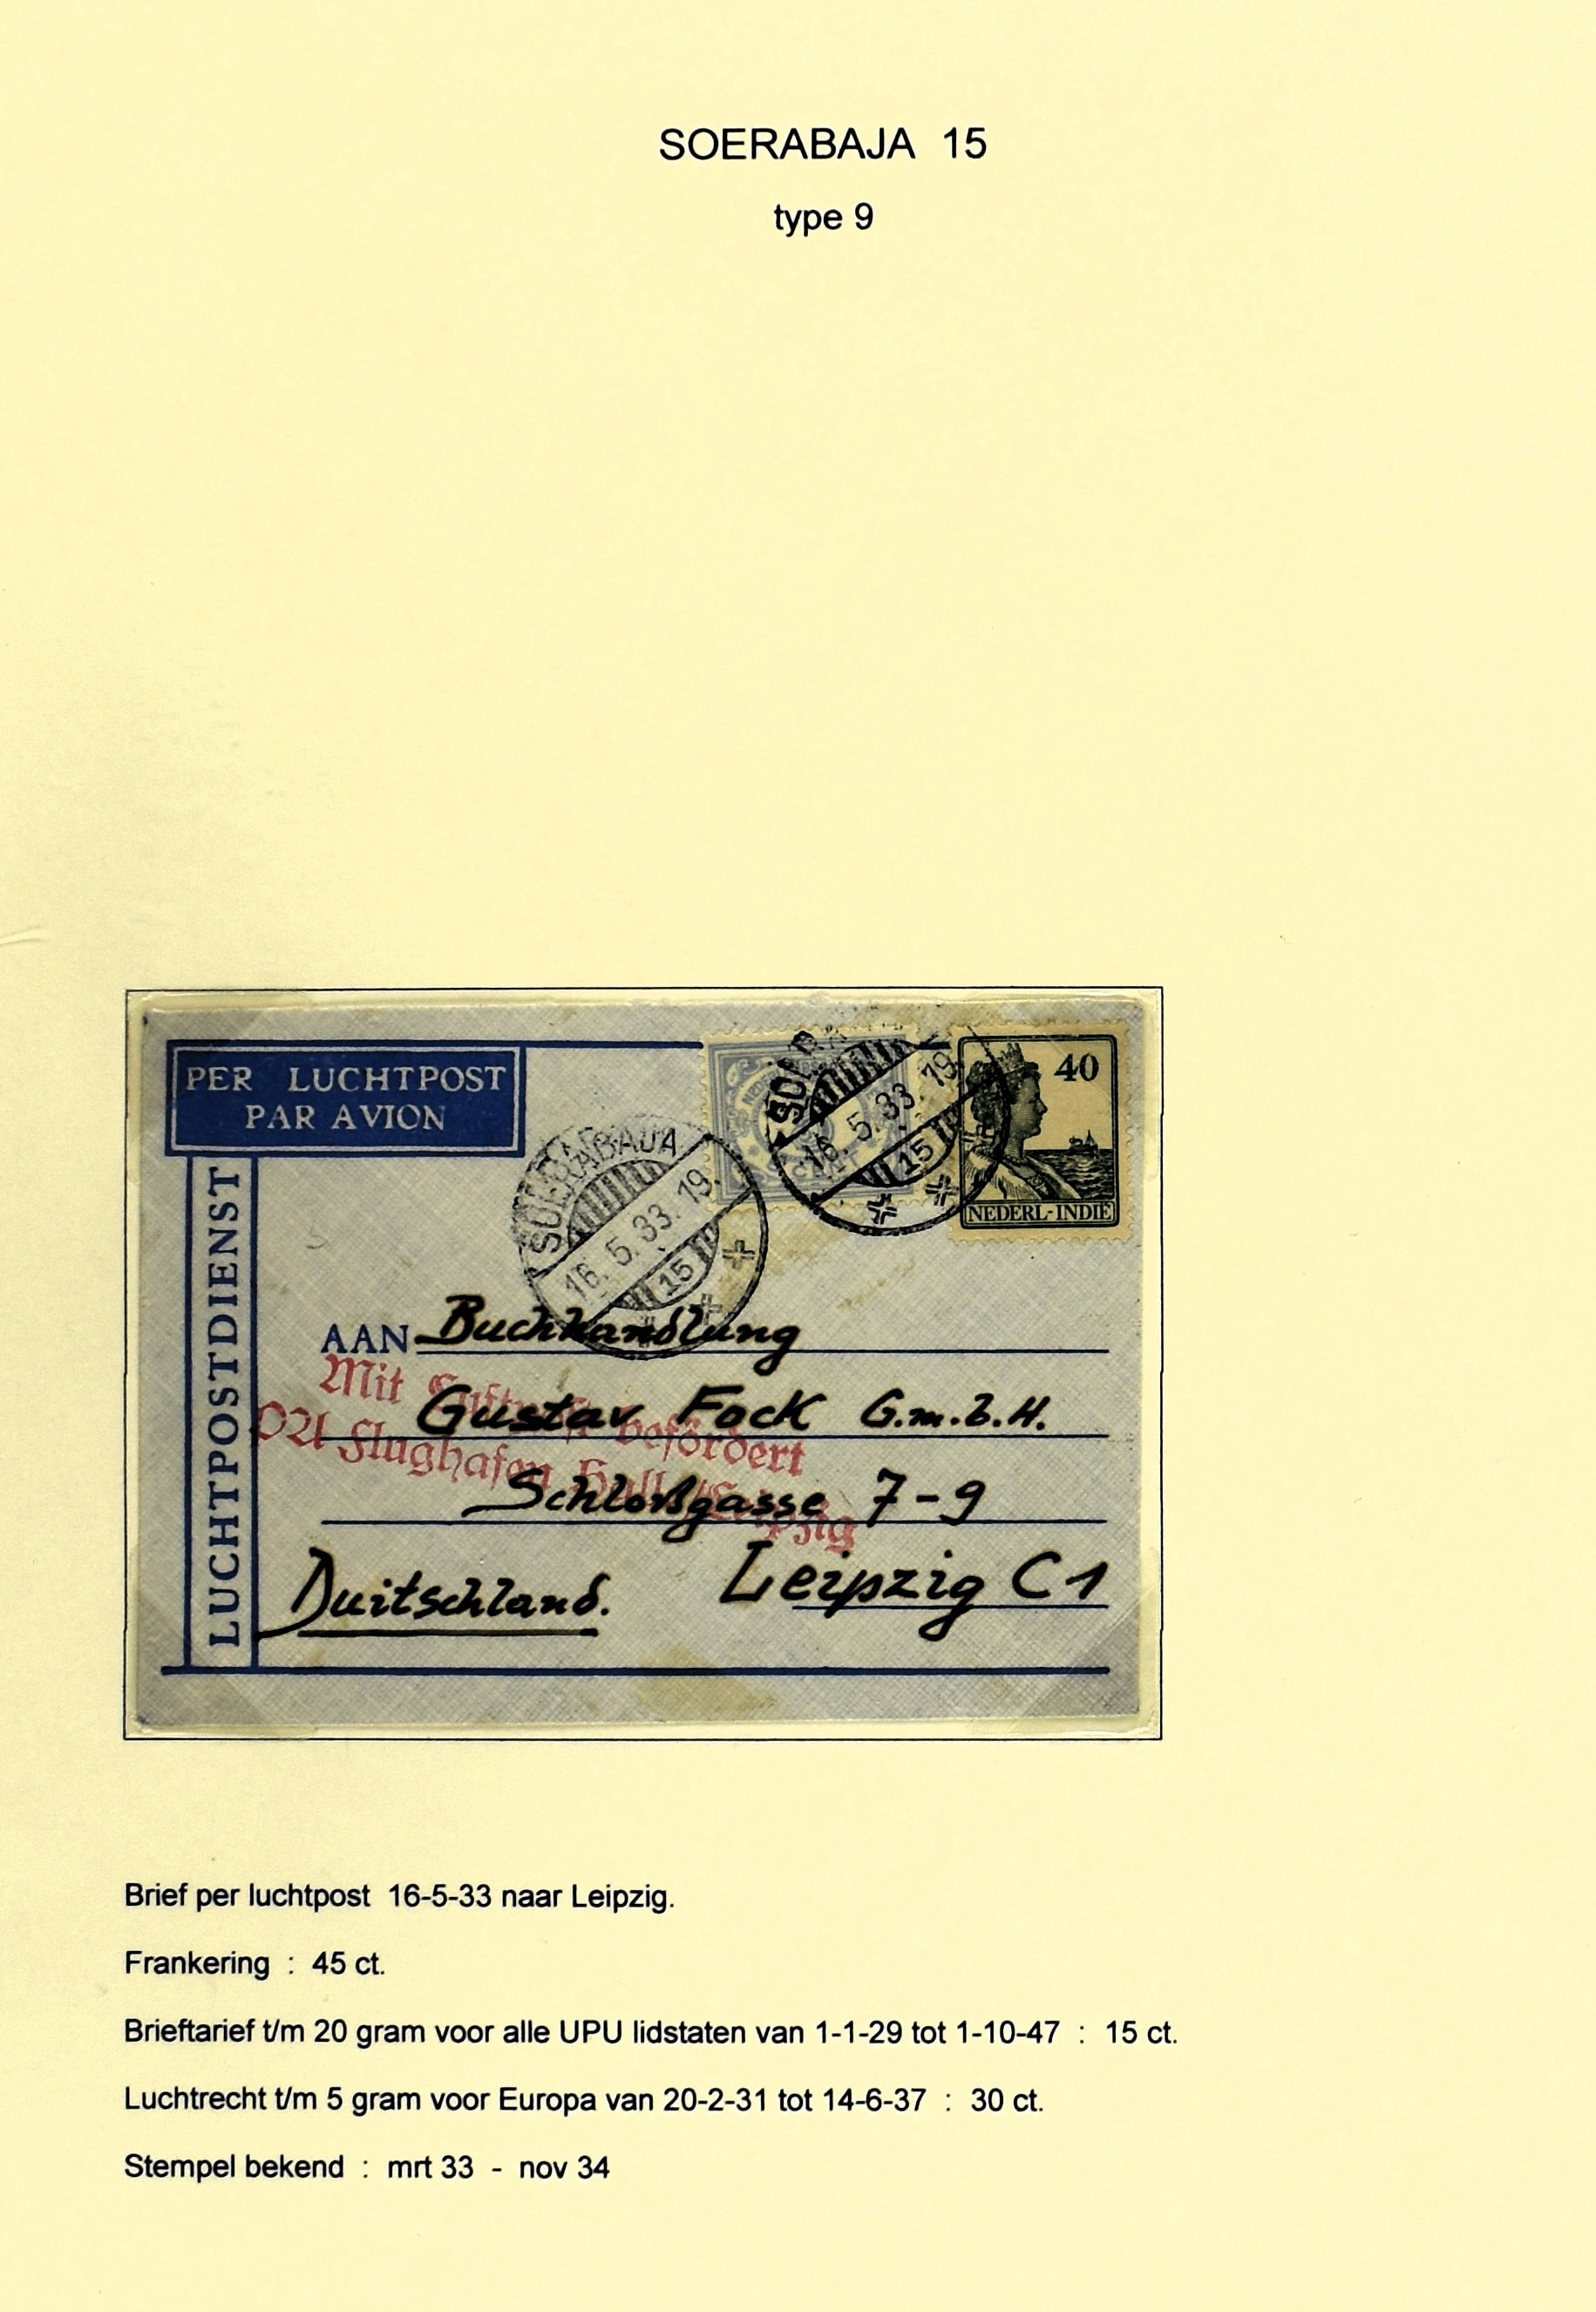 SOERABAJA 15
type 9
PER LUCHTPOST
PAR AVION
LUCHTPOSTDIENST
SOERABAJA
16. 5. 33. 19.
15
SOERA
16. 5. 33. 19.
15
40
NEDERL-INDIË
AAN Buchhandlung
Mit Luftpost befördert
Gustav Fock G.m.b.H.
PA Flughafen Halle/Leipzig
Schloßgasse 7-9
Leipzig C1
Duitschland.
Brief per luchtpost 16-5-33 naar Leipzig.
Frankering : 45 ct.
Brieftarief t/m 20 gram voor alle UPU lidstaten van 1-1-29 tot 1-10-47 : 15 ct.
Luchtrecht t/m 5 gram voor Europa van 20-2-31 tot 14-6-37 : 30 ct.
Stempel bekend : mrt 33 - nov 34